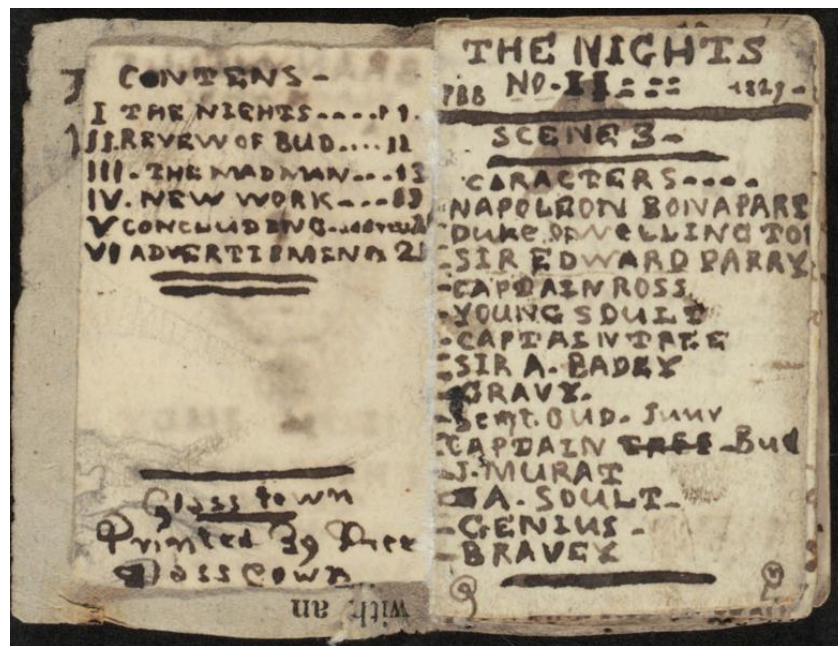 CONTENS-
I THE NIGHTS----P 1.
II.REVEW OF BUD....11
III-THE MADMAN---13
IV. NEW WORK----
V CONCLUDING-
VI ADVERTISMENA 2
Glass town
Printed By Tree
Glass Town
with an
THE NIGHTS
PBB NO-II=== 1829-
SCENE 3-
CARACTERS----
-NAPOLEON BONAPART
-DUKe OF WELLINGTON
-SIR EDWARD PARRY
-CAPTAIN ROSS
-YOUNG SOULT
-CAPTAIN TREE
-SIR A. BADEY
-GRAVY.
-Sergt. BUD. Junr
-CAPTAIN TREE Bud
-J. MURAT
-A. SOULT-
-GENIUS-
-BRAVEY